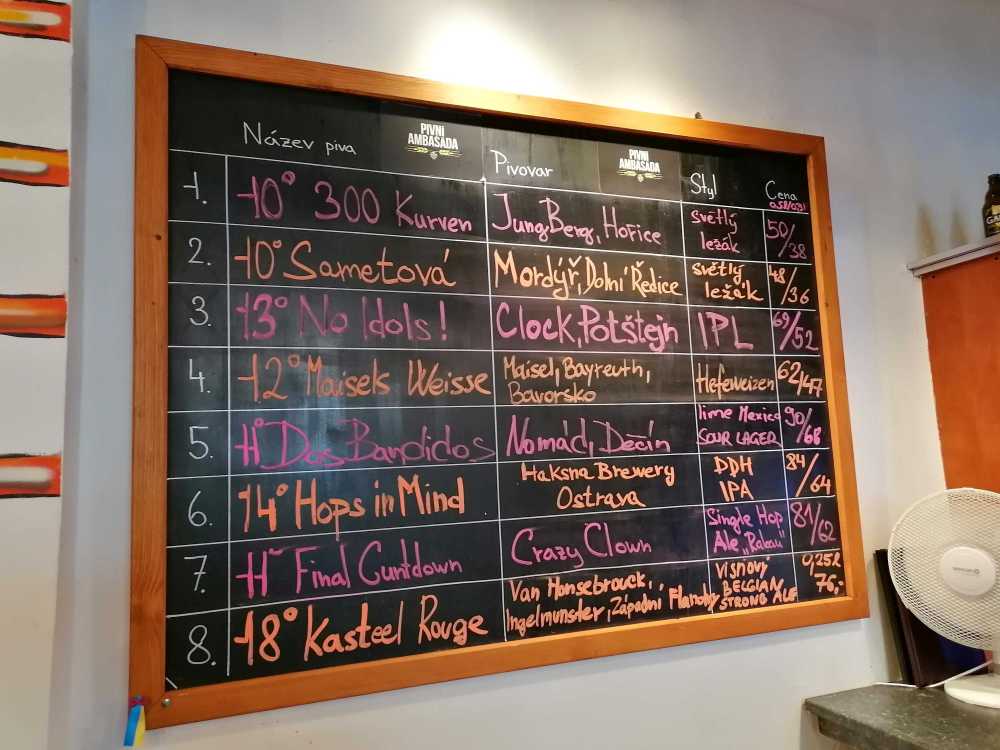 Název piva
PIVNÍ
AMBASÁDA
Pivovar
PIVNÍ
AMBASÁDA
Styl
Cena
1. 10° 300 Kurven JungBerg, Hořice světlý
ležák 50/38
2. 10° Sametová Mordýř, Dolní Ředice světlý
ležák 48/36
3. 13° No Idols! Clock, Potštejn IPL 69/52
4. 12° Maisels Weisse Maisel, Bayreuth,
Bavorsko Hefeweizen 62/47
5. 11° Dos Bandidos Nomád, Děčín lime Mexico
SOUR LAGER 90/68
6. 14° Hops in Mind Haksna Brewery
Ostrava DDH
IPA 84/64
7. 11° Final Cuntdown Crazy Clown Single Hop
Ale 81/62
8. 18° Kasteel Rouge Van Honsebrouck,
Ingelmunster, Západní Flandry VIŠŇOVÝ
BELGIAN
STRONG ALE 0,25l
76,-